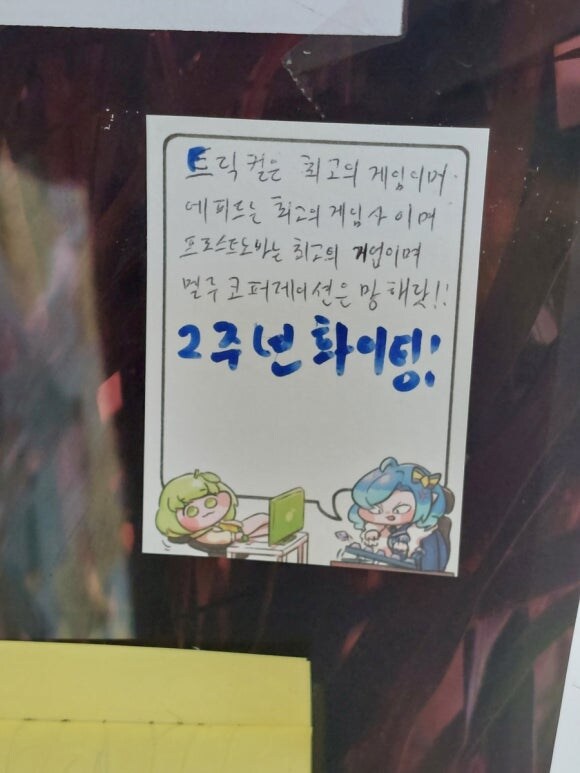 트릭컬은 최고의 게임이며
에피드는 최고의 게임사이며
프로스트도바는 최고의 기업이며
멜루코퍼레이션은 망해랏!!
2주년 화이팅!